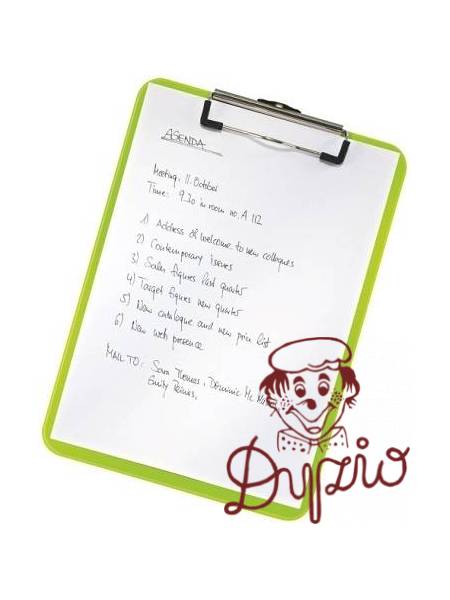 AGENDA
Meeting: 11. October
Time: 9.30 in room no. A 112
1) Address of welcome to new colleagues
2) Contemporary issues
3) Sales figures last quarter
4) Target figures new quarter
5) New catalogue and new price list
6) New web presence
MAIL TO: Sara Thomas, Dominic Mc
Emily
Dyzio